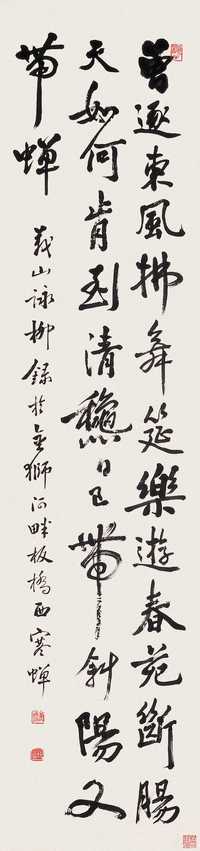 曾逐東風拂舞筵樂遊春苑斷腸
天如何肯到清龝日已帶斜陽又
帶蟬
義山詠柳錄於金獅河畔板橋西寒蟬